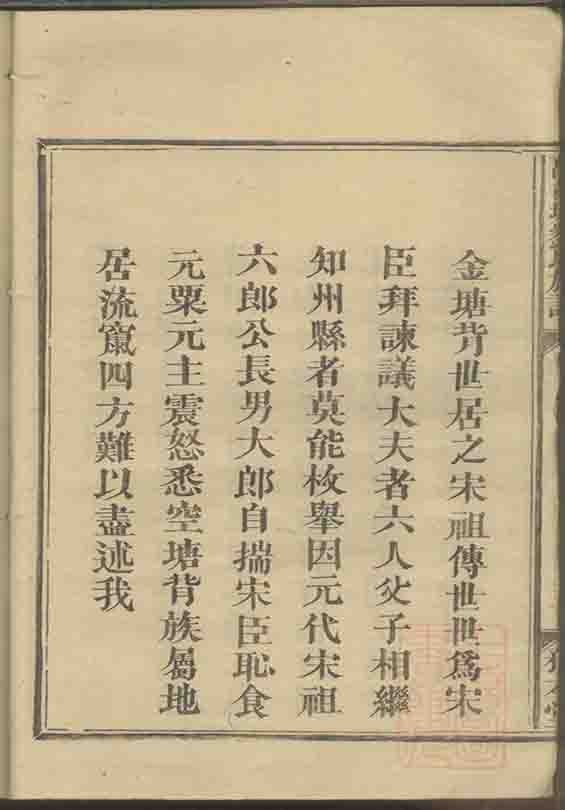 金塘背世居之宋祖傳世世爲宋
臣拜諫議大夫者六人父子相繼
知州縣者莫能枚舉因元代宋祖
六郎公長男大郎自揣宋臣恥食
元粟元主震怒悉空塘背族屬地
居流竄四方難以盡述我